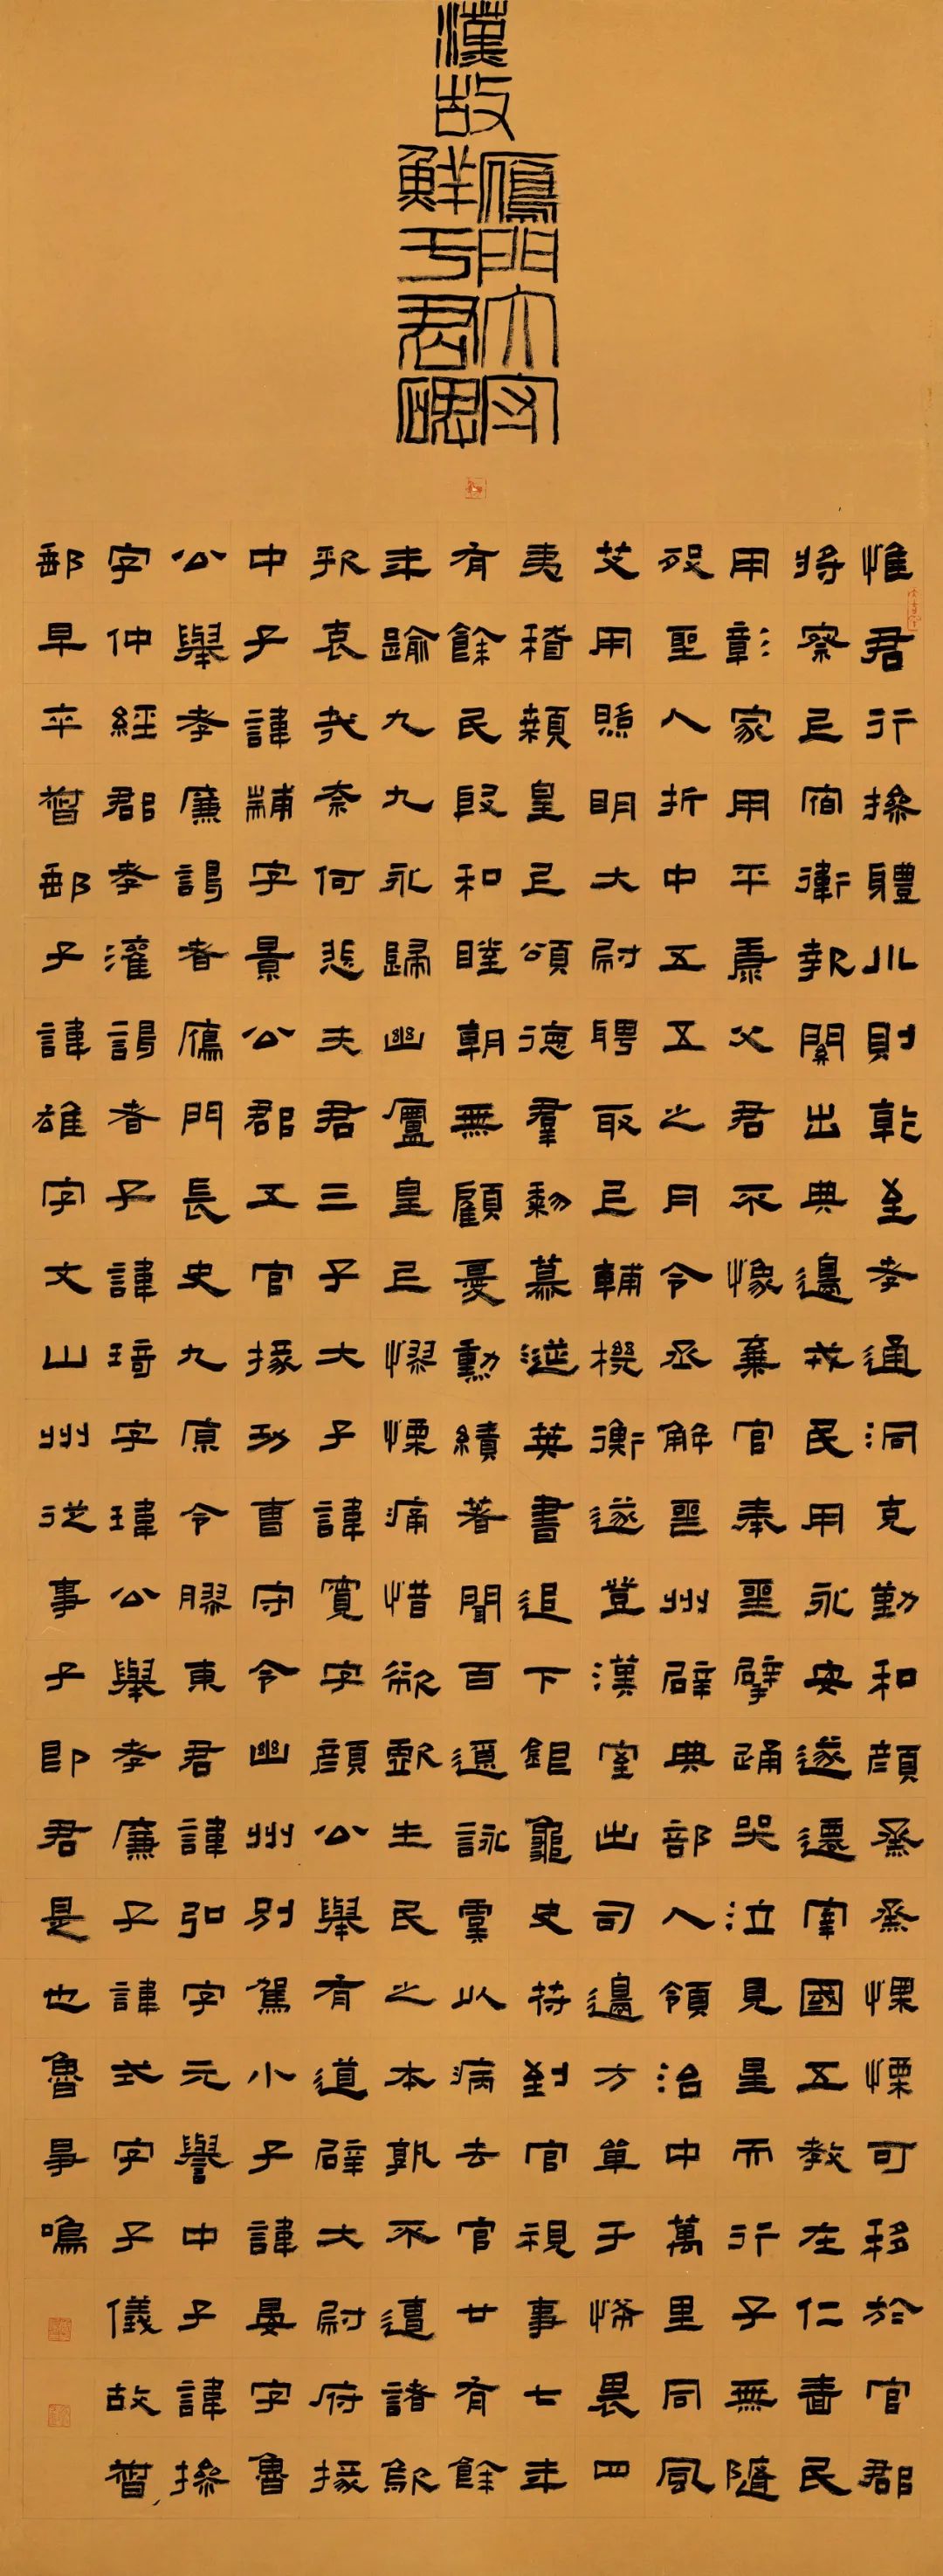 漢故
鴈門大守
鮮于君碑
惟君行操體川則乾至孝通洞克勤和顏烝烝慄慄可移於官郡
將察巳宿衛報關出典邊戎民用永安遂遷宰國五教在仁嗇民
用彰家用平康父君不像棄官奉喪擗踊哭泣見星而行子無隨
殁聖人折中五五之月令丞解喪州辟典部入領治中萬里同風
艾用照明大尉聘取巳輔機衡遂登漢室出司邊方單于怖畏四
夷稽顙皇巳頌德羣黎慕涎英書追下銀龜史符到官視事七年
有餘民殷和睦朝無顧憂勳績著聞百遼詠虞以病去官廿有餘
年踰九九永歸幽廬皇巳憀慄痛惜欷歔生民之本孰不遭諸歍
歑哀哉奈何悲夫君三子大子諱寬字顏公舉有道辟大尉府掾
中子諱黼字景公郡五官掾功曹守令幽州別駕小子諱晏字魯
公舉孝廉謁者鴈門長史九原令膠東君諱弘字元譽中子諱操
字仲經郡孝灌謁者子諱琦字瑋公舉孝廉子諱式字子儀故督
郵早卒督郵子諱雄字文山州從事子即君是也魯鳴